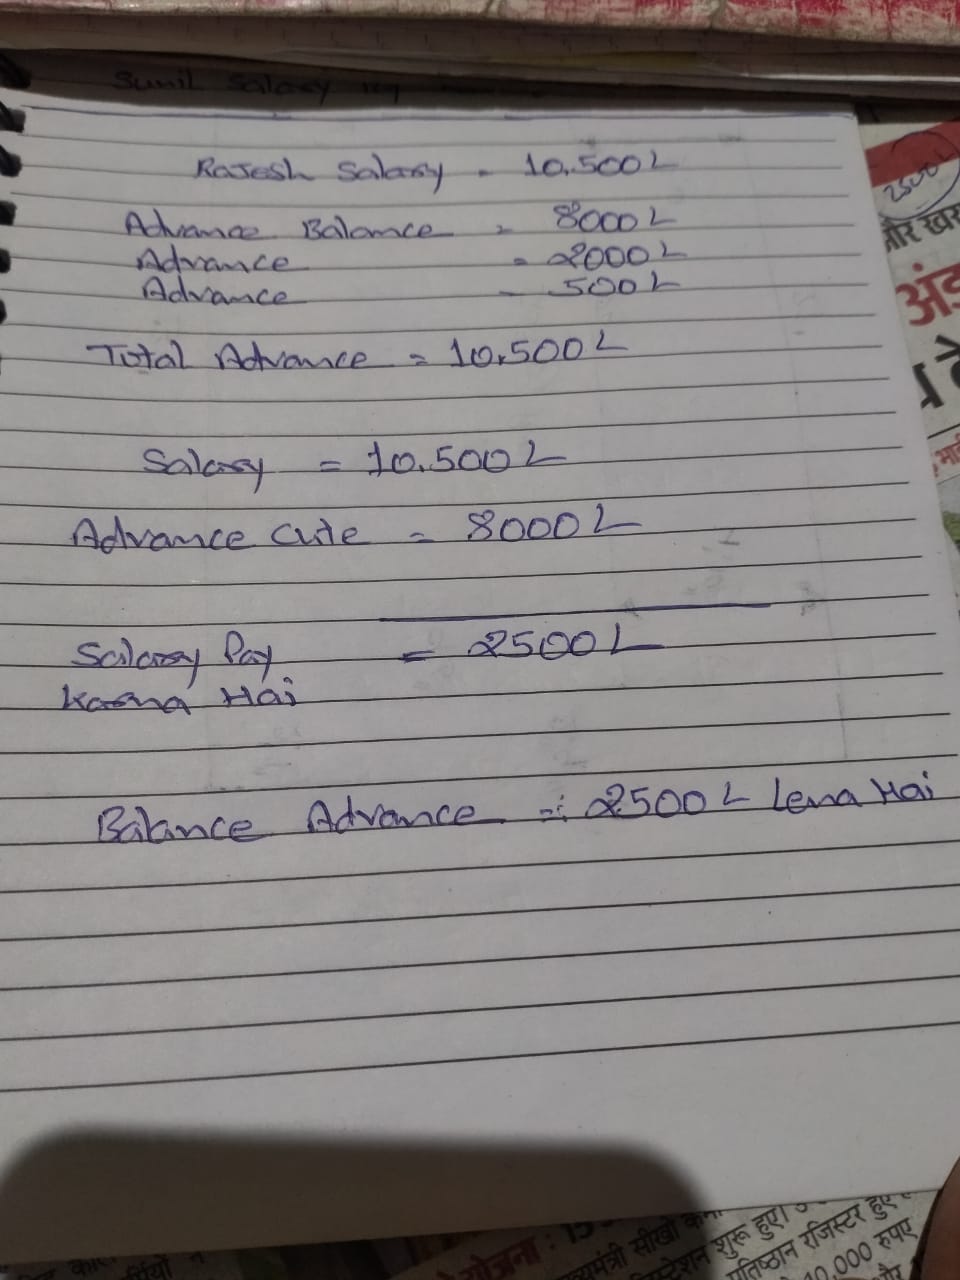 Sunil Salary
Rajesh Salary - 10,500 L
Advance Balance = 8000 L
Advance = 2000 L
Advance - 500 L
Total Advance = 10,500 L
Salary = 10,500 L
Advance Cute = 8000 L
Salary Pay = 2500 L
Karna Hai
Balance Advance =: 2500 L Lena Hai
2500 L
और खबर
योजना : 15
मुख्यमंत्री सीखो
शुरू हुए।
रजिस्टर हुए
10,000 रुपए